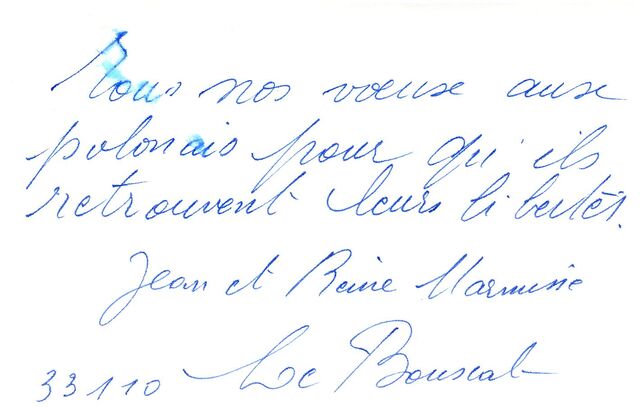 Tous nos voeux aux
polonais pour qu'ils
retrouvent leurs libertés.
Jean et Reine Marmissé
33110 Le Bouscat